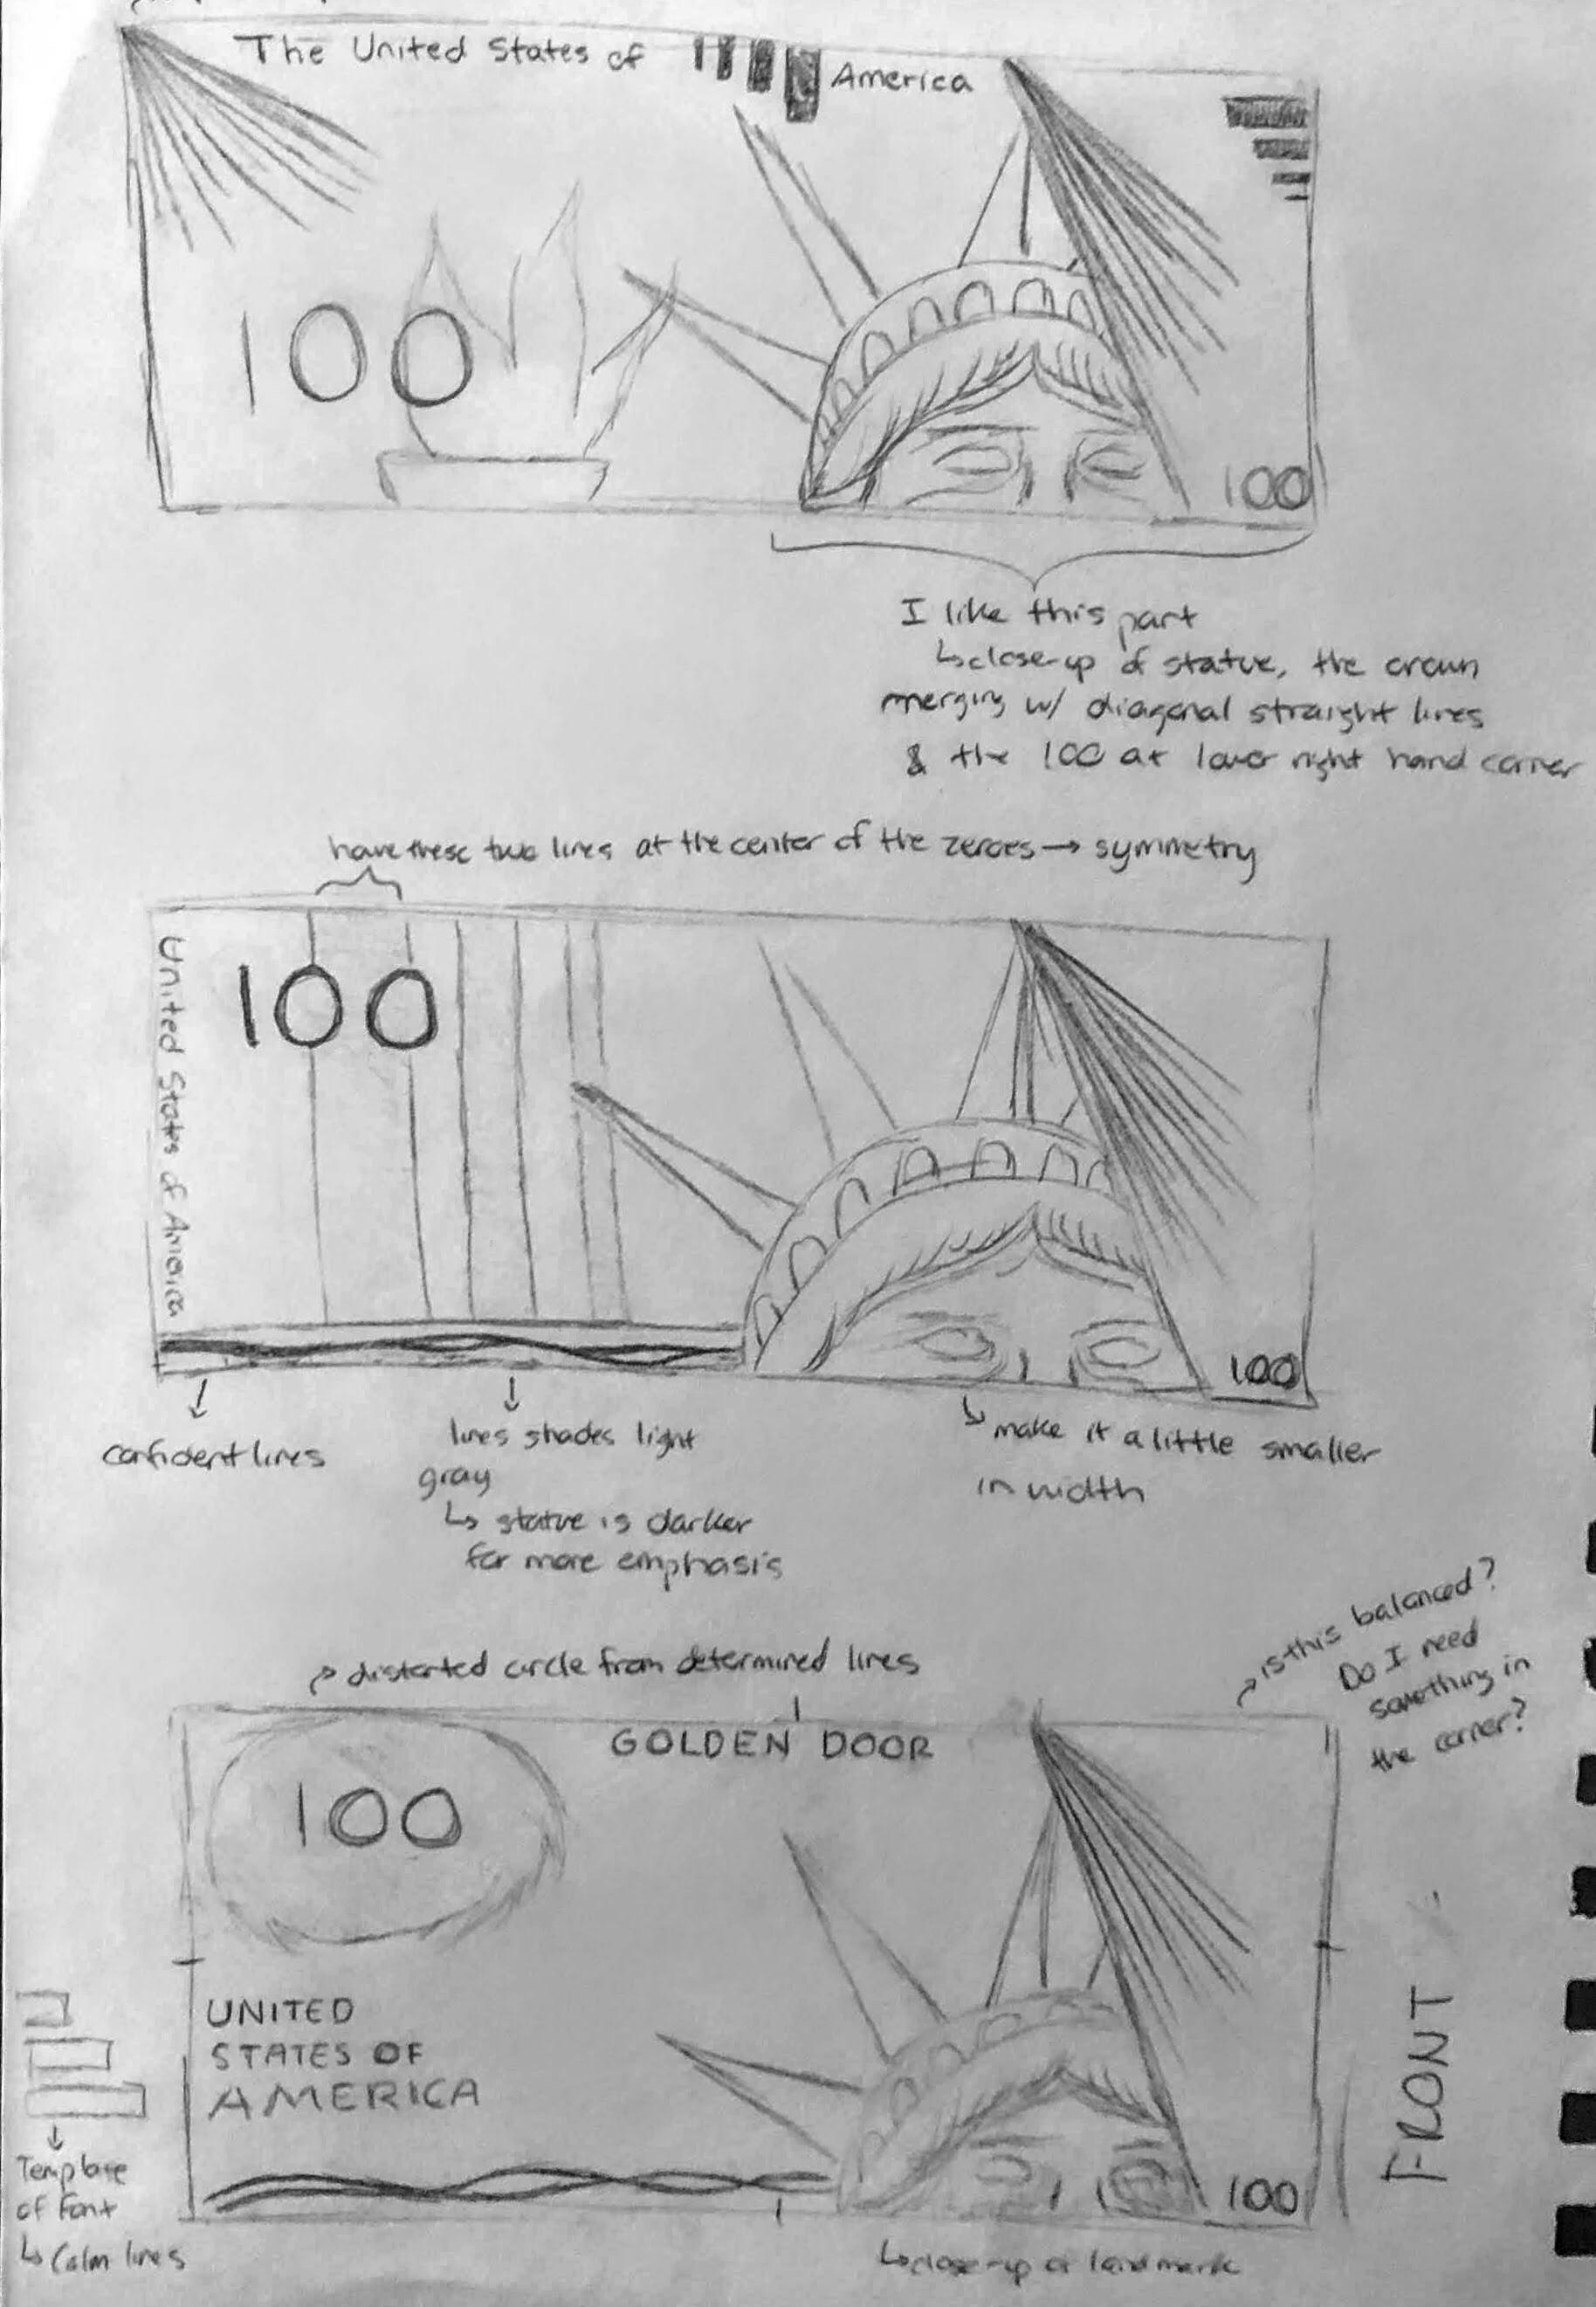 The United States of America
100
100
I like this part
↳close-up of statue, the crown
merging w/ diagonal straight lines
& the 100 at lower right hand corner
have these two lines at the center of the zeroes → symmetry
United States of America
100
100
confident lines
lines shades light
gray
↳ statue is darker
for more emphasis
make it a little smaller
in width
is this balanced?
Do I need
something in
the corner?
distorted circle from determined lines
GOLDEN DOOR
100
UNITED
STATES OF
AMERICA
Template
of Font
↳ Calm lines
100
FRONT
↳close-up of landmark